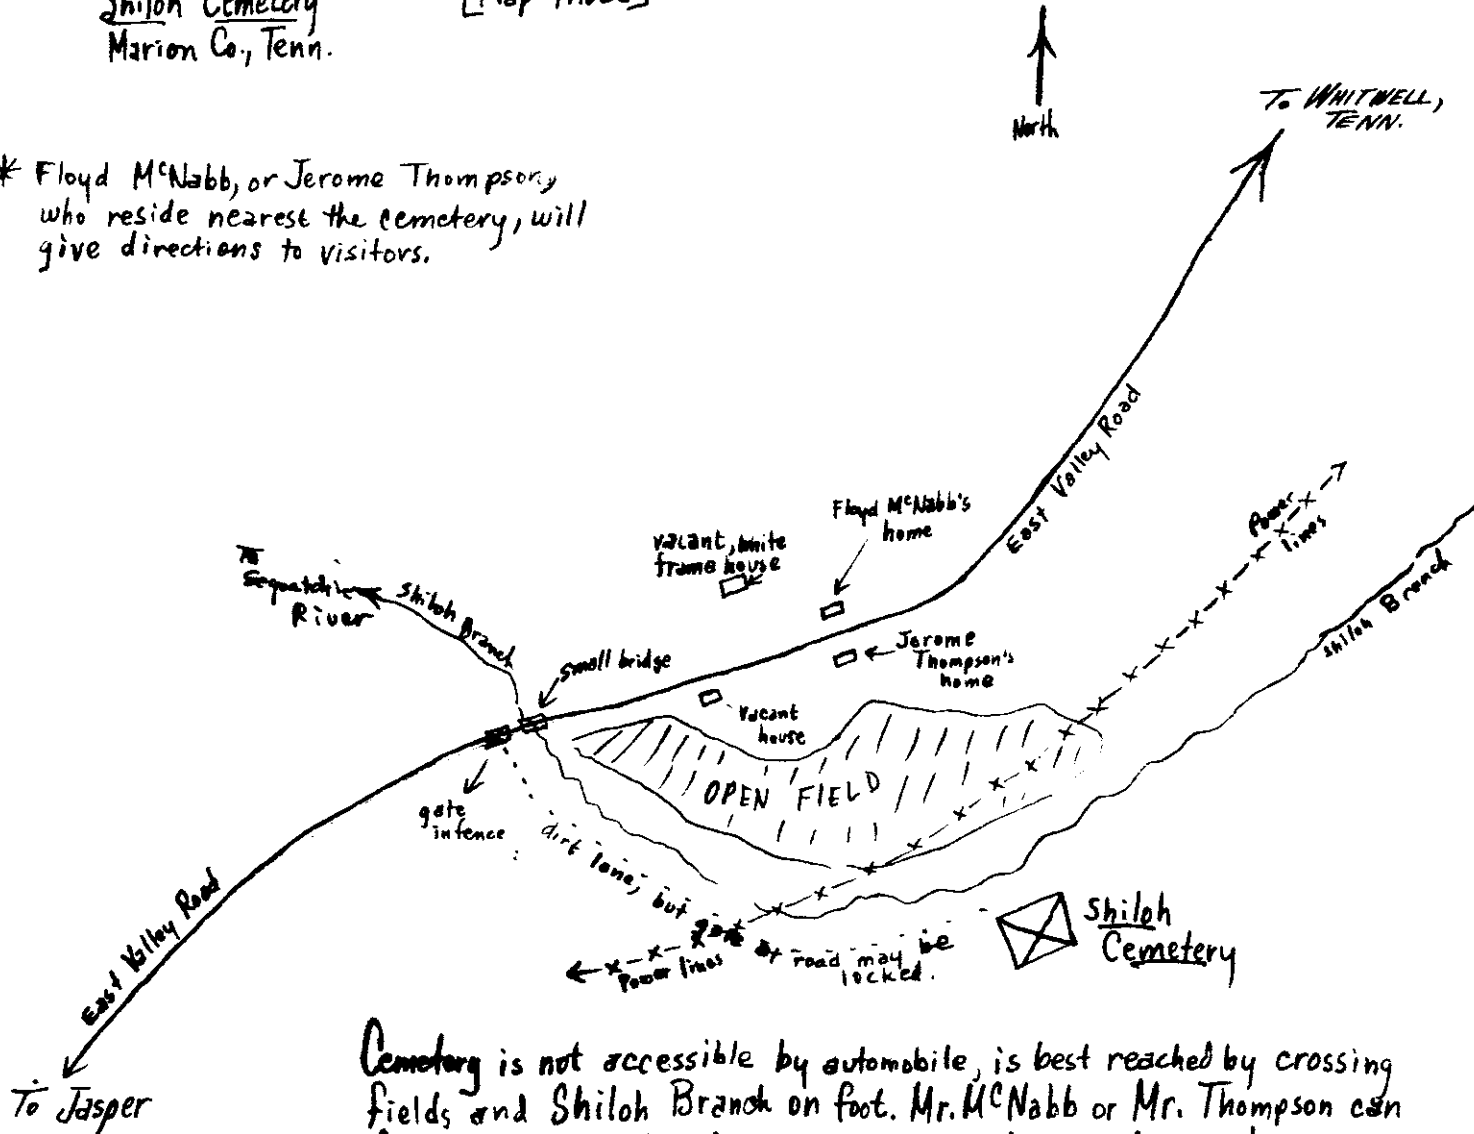 Shiloh Cemetery
Marion Co., Tenn.
[Map
North
To WHITWELL,
TENN.
* Floyd McNabb, or Jerome Thompson,
who reside nearest the cemetery, will
give directions to visitors.
East Valley Road
Floyd McNabb's
home
vacant, white
frame house
Power
lines
To
Sequatchie
River
Shiloh Branch
Shiloh Branch
small bridge
Jerome
Thompson's
home
Vacant
house
OPEN FIELD
gate
in fence
dirt lane, but gate at road may be
locked.
Power lines
Shiloh
Cemetery
East Valley Road
To Jasper
Cemetery is not accessible by automobile, is best reached by crossing
fields and Shiloh Branch on foot. Mr. McNabb or Mr. Thompson can